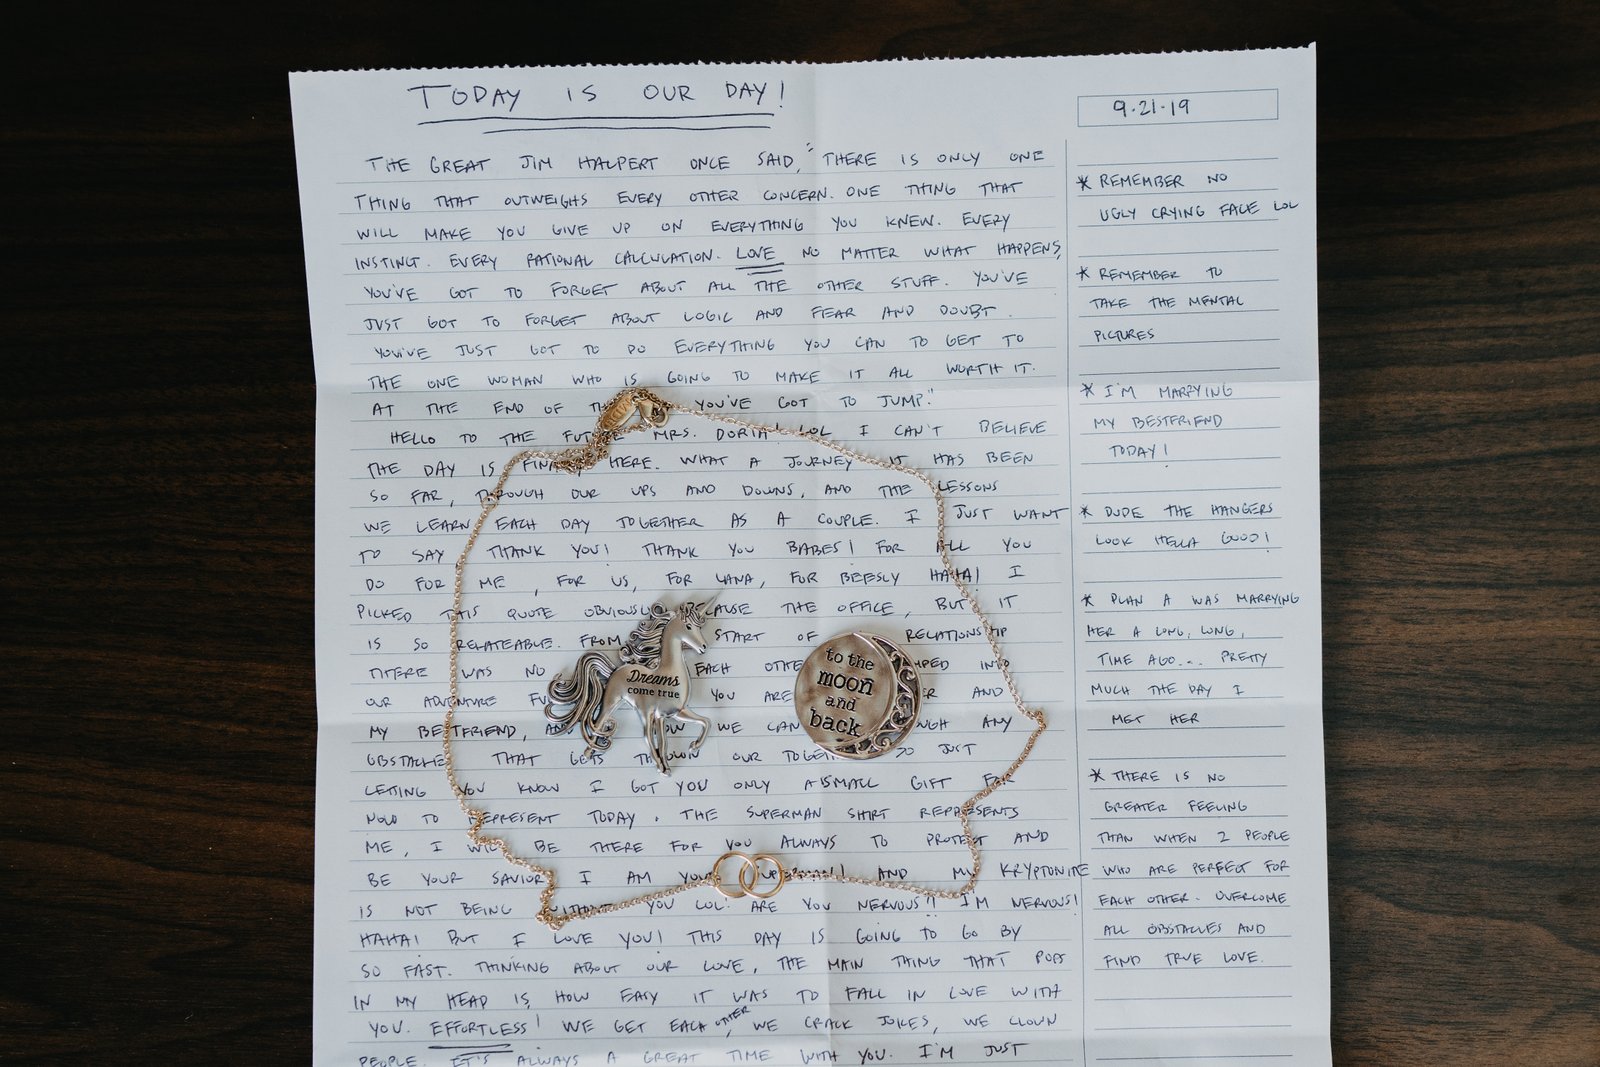 TODAY IS OUR DAY!
9.21.19
THE GREAT JIM HALPERT ONCE SAID, "THERE IS ONLY ONE
THING THAT OUTWEIGHS EVERY OTHER CONCERN. ONE THING THAT
WILL MAKE YOU GIVE UP ON EVERYTHING YOU KNEW. EVERY
INSTINCT. EVERY RATIONAL CALCULATION. LOVE NO MATTER WHAT HAPPENS,
YOU'VE GOT TO FORGET ABOUT ALL THE OTHER STUFF. YOU'VE
JUST GOT TO FORGET ABOUT LOGIC AND FEAR AND DOUBT.
YOU'VE JUST GOT TO DO EVERYTHING YOU CAN TO GET TO
THE ONE WOMAN WHO IS GOING TO MAKE IT ALL WORTH IT.
AT THE END OF YOU'VE GOT TO JUMP."
HELLO TO THE FUTURE MRS. DORIA! LOL I CAN'T BELIEVE
THE DAY IS FINALLY HERE. WHAT A JOURNEY IT HAS BEEN
SO FAR, THROUGH OUR UPS AND DOWNS, AND THE LESSONS
WE LEARN EACH DAY TOGETHER AS A COUPLE. I JUST WANT
TO SAY THANK YOU! THANK YOU BABES! FOR ALL YOU
DO FOR ME, FOR US, FOR LANA, FOR BEESLY HAHA! I
PICKED THIS QUOTE OBVIOUSLY THE OFFICE, BUT IT
IS SO RELATEABLE. FROM START OF RELATIONSHIP
THERE WAS NO EACH INTO
OUR ADVENTURE YOU ARE AND
MY BESTFRIEND, WE CAN ANY
OBSTACLE THAT GETS THROWN OUR SO JUST
LETTING YOU KNOW I GOT YOU ONLY A SMALL GIFT FOR
NOW TO REPRESENT TODAY. THE SUPERMAN SHIRT REPRESENTS
ME, I WILL BE THERE FOR YOU ALWAYS TO PROTECT AND
BE YOUR SAVIOR I AM YOUR SUPERMAN! AND MY KRYPTONITE
IS NOT BEING WITHOUT YOU LOL! ARE YOU NERVOUS?! I'M NERVOUS!
HAHA! BUT I LOVE YOU! THIS DAY IS GOING TO GO BY
SO FAST. THINKING ABOUT OUR LOVE, THE MAIN THING THAT POPS
IN MY HEAD IS, HOW EASY IT WAS TO FALL IN LOVE WITH
YOU. EFFORTLESS! WE GET EACH OTHER, WE CRACK JOKES, WE CLOWN
PEOPLE. IT'S ALWAYS A GREAT TIME WITH YOU. I'M JUST
* REMEMBER NO
UGLY CRYING FACE LOL
* REMEMBER TO
TAKE THE MENTAL
PICTURES
* I'M MARRYING
MY BESTFRIEND
TODAY!
* DUDE THE HANGERS
LOOK HELLA GOOD!
* PLAN A WAS MARRYING
HER A LONG, LONG,
TIME AGO... PRETTY
MUCH THE DAY I
MET HER
* THERE IS NO
GREATER FEELING
THAN WHEN 2 PEOPLE
WHO ARE PERFECT FOR
EACH OTHER. OVERCOME
ALL OBSTACLES AND
FIND TRUE LOVE.
Dreams
come true
to the
moon
and
back